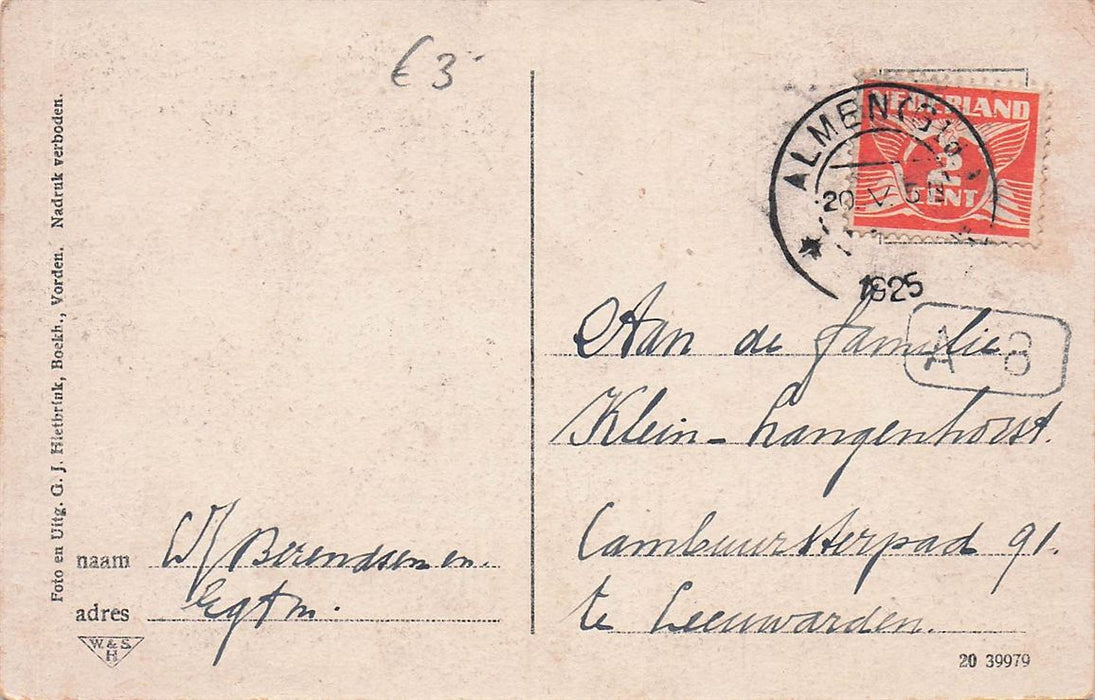 € 3
Foto en Uitg. G. J. Hietbrink, Boekh., Vorden. Nadruk verboden.
NEDERLAND
2
CENT
ALMEN
20.V.
1925
A 8
Aan de familie
Klein-Langenhorst.
Cambuursterpad 91.
te Leeuwarden.
naam W/ Berendsen en.
adres Egtn.
W. & S.
H
20 39979